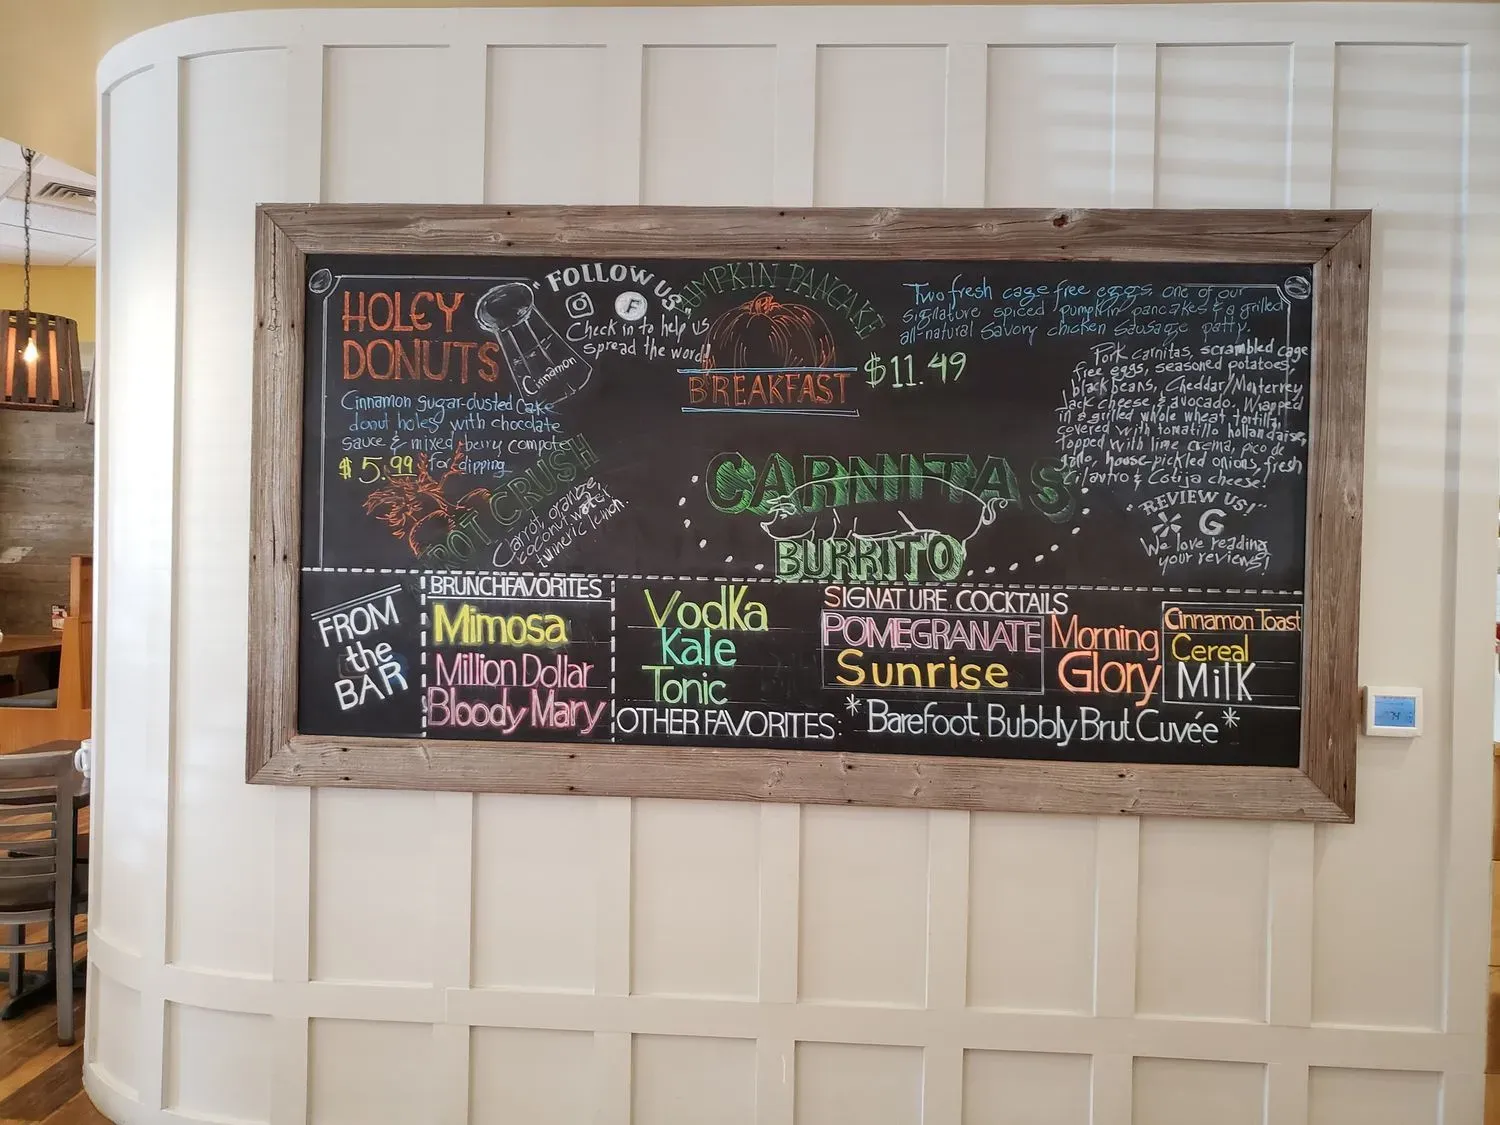 HOLEY
DONUTS
Cinnamon
Cinnamon sugar-dusted Cake
donut holes with chocolate
sauce & mixed berry compote
$5.99 for dipping
"FOLLOW US"
Check in to help us
spread the word!
PUMPKIN PANCAKE
BREAKFAST
$11.49
Two fresh cage free eggs, one of our
signature spiced pumpkin pancakes & a grilled
all-natural savory chicken sausage patty.
CRUSH
Carrot, orange,
coconut water
turmeric, lemon.
CARNITAS
BURRITO
Pork carnitas, scrambled cage
free eggs, seasoned potatoes,
black beans, Cheddar/Monterrey
Jack cheese & avocado. Wrapped
in a grilled whole wheat tortilla,
covered with tomatillo hollandaise,
Topped with lime crema, pico de
gallo, house-pickled onions, fresh
Cilantro & Cotija cheese!
"REVIEW US!"
G
We love reading
your reviews!
FROM
the
BAR
BRUNCH FAVORITES
Mimosa
Million Dollar
Bloody Mary
Vodka
Kale
Tonic
SIGNATURE COCKTAILS
POMEGRANATE
Sunrise
Morning
Glory
Cinnamon Toast
Cereal
Milk
OTHER FAVORITES: *Barefoot Bubbly Brut Cuvée*
74